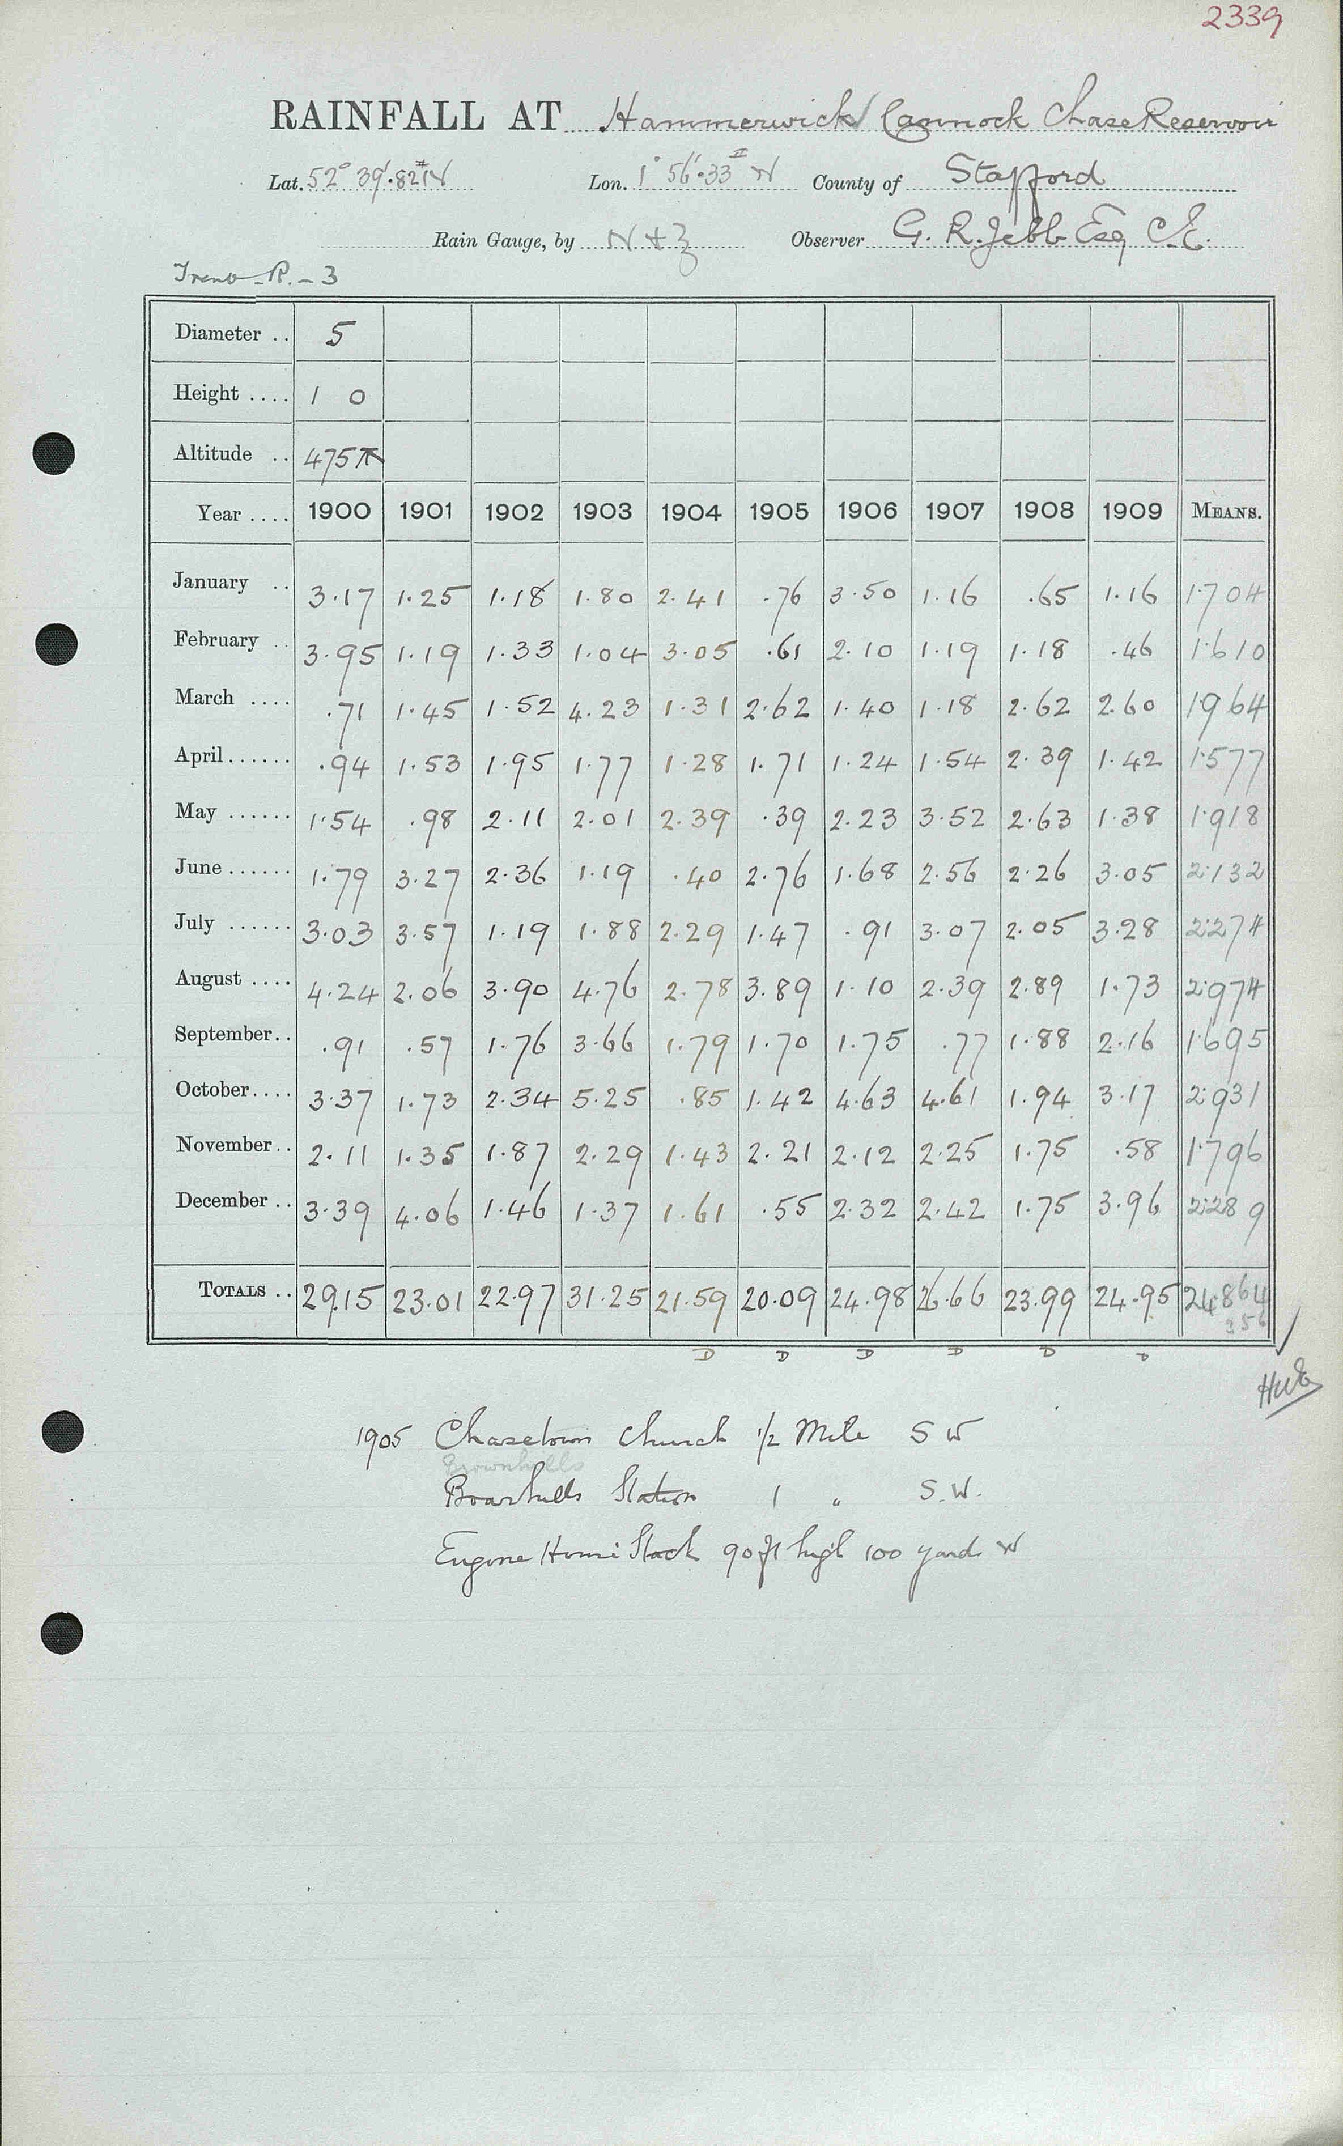 2339
RAINFALL AT Hammerwick / Cannock Chase Reservoir
Lat. 52° 39'.82 N Lon. 1° 56'.33 W County of Stafford
Rain Gauge, by N & Z Observer G. R. Jebb Esq C.E.
Trent R. - 3
Diameter .. 5
Height .... 1 0
Altitude .. 475
Year .... 1900 1901 1902 1903 1904 1905 1906 1907 1908 1909 MEANS.
January .. 3.17 1.25 1.18 1.80 2.41 .76 3.50 1.16 .65 1.16 1.704
February .. 3.95 1.19 1.33 1.04 3.05 .61 2.10 1.19 1.18 .46 1.610
March .... .71 1.45 1.52 4.23 1.31 2.62 1.40 1.18 2.62 2.60 1.964
April...... .94 1.53 1.95 1.77 1.28 1.71 1.24 1.54 2.39 1.42 1.577
May ...... 1.54 .98 2.11 2.01 2.39 .39 2.23 3.52 2.63 1.38 1.918
June...... 1.79 3.27 2.36 1.19 .40 2.76 1.68 2.56 2.26 3.05 2.132
July ...... 3.03 3.57 1.19 1.88 2.29 1.47 .91 3.07 2.05 3.28 2.274
August .... 4.24 2.06 3.90 4.76 2.78 3.89 1.10 2.39 2.89 1.73 2.974
September.. .91 .57 1.76 3.66 1.79 1.70 1.75 .77 1.88 2.16 1.695
October.... 3.37 1.73 2.34 5.25 .85 1.42 4.63 4.61 1.94 3.17 2.931
November.. 2.11 1.35 1.87 2.29 1.43 2.21 2.12 2.25 1.75 .58 1.796
December .. 3.39 4.06 1.46 1.37 1.61 .55 2.32 2.42 1.75 3.96 2.289
TOTALS .. 29.15 23.01 22.97 31.25 21.59 20.09 24.98 26.66 23.99 24.95 24.864
D D D D D D
1905 Chasetown Church 1/2 Mile S W
Brownhills
Boarhills Station 1 " S.W.
Engine House Stack 90 ft high 100 yards W